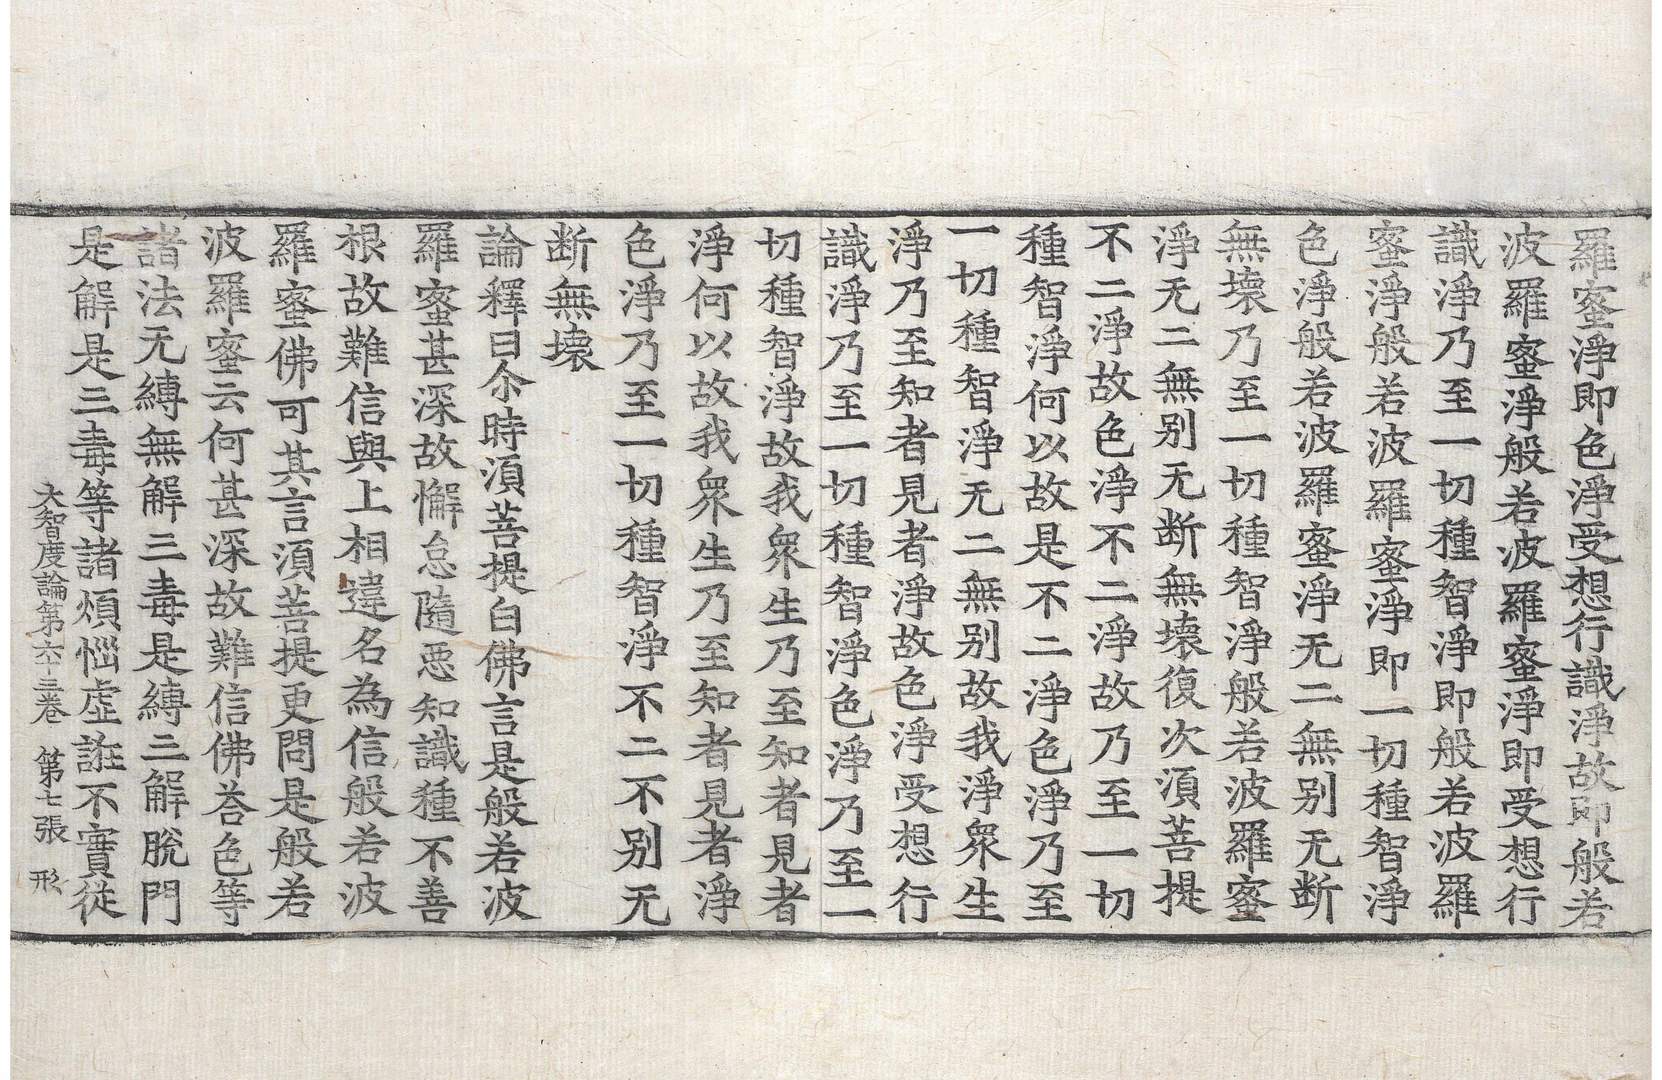 羅蜜淨即色淨受想行識淨故即般若
波羅蜜淨般若波羅蜜淨即受想行
識淨乃至一切種智淨即般若波羅
蜜淨般若波羅蜜淨即一切種智淨
色淨般若波羅蜜淨无二無别无断
無壊乃至一切種智淨般若波羅蜜
淨无二無别无断無壊復次湏菩提
不二淨故色淨不二淨故乃至一切
種智淨何以故是不二淨色淨乃至
一切種智淨无二無别故我淨衆生
淨乃至知者見者淨故色淨受想行
識淨乃至一切種智淨色淨乃至一
切種智淨故我衆生乃至知者見者
淨何以故我衆生乃至知者見者淨
色淨乃至一切種智淨不二不别无
断無壊
論釋曰尒時湏菩提白佛言是般若波
羅蜜甚深故懈怠隨惡知識種不善
根故難信與上相違名為信般若波
羅蜜佛可其言湏菩提更問是般若
波羅蜜云何甚深故難信佛荅色等
諸法无縛無解三毒是縛三解脫門
是解是三毒等諸煩惱虛誑不實從
大智度論第六十三卷 第七張 形